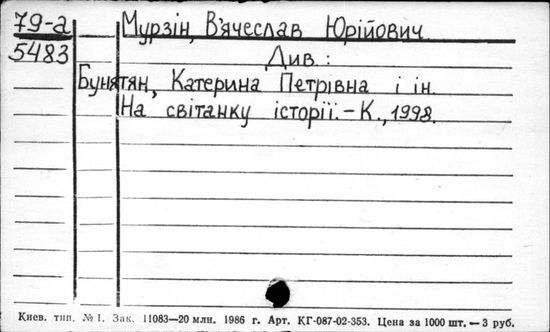 79-а Мурзін, В'ячеслав Юрійович.
5483 Див.:
Бунятян, Катерина Петрівна і ін.
На світанку історії. - К., 1998.
Киев. тип. № 1. Зак. 11083—20 млн. 1986 г. Арт. КГ-087-02-353. Цена за 1000 шт. — 3 руб.